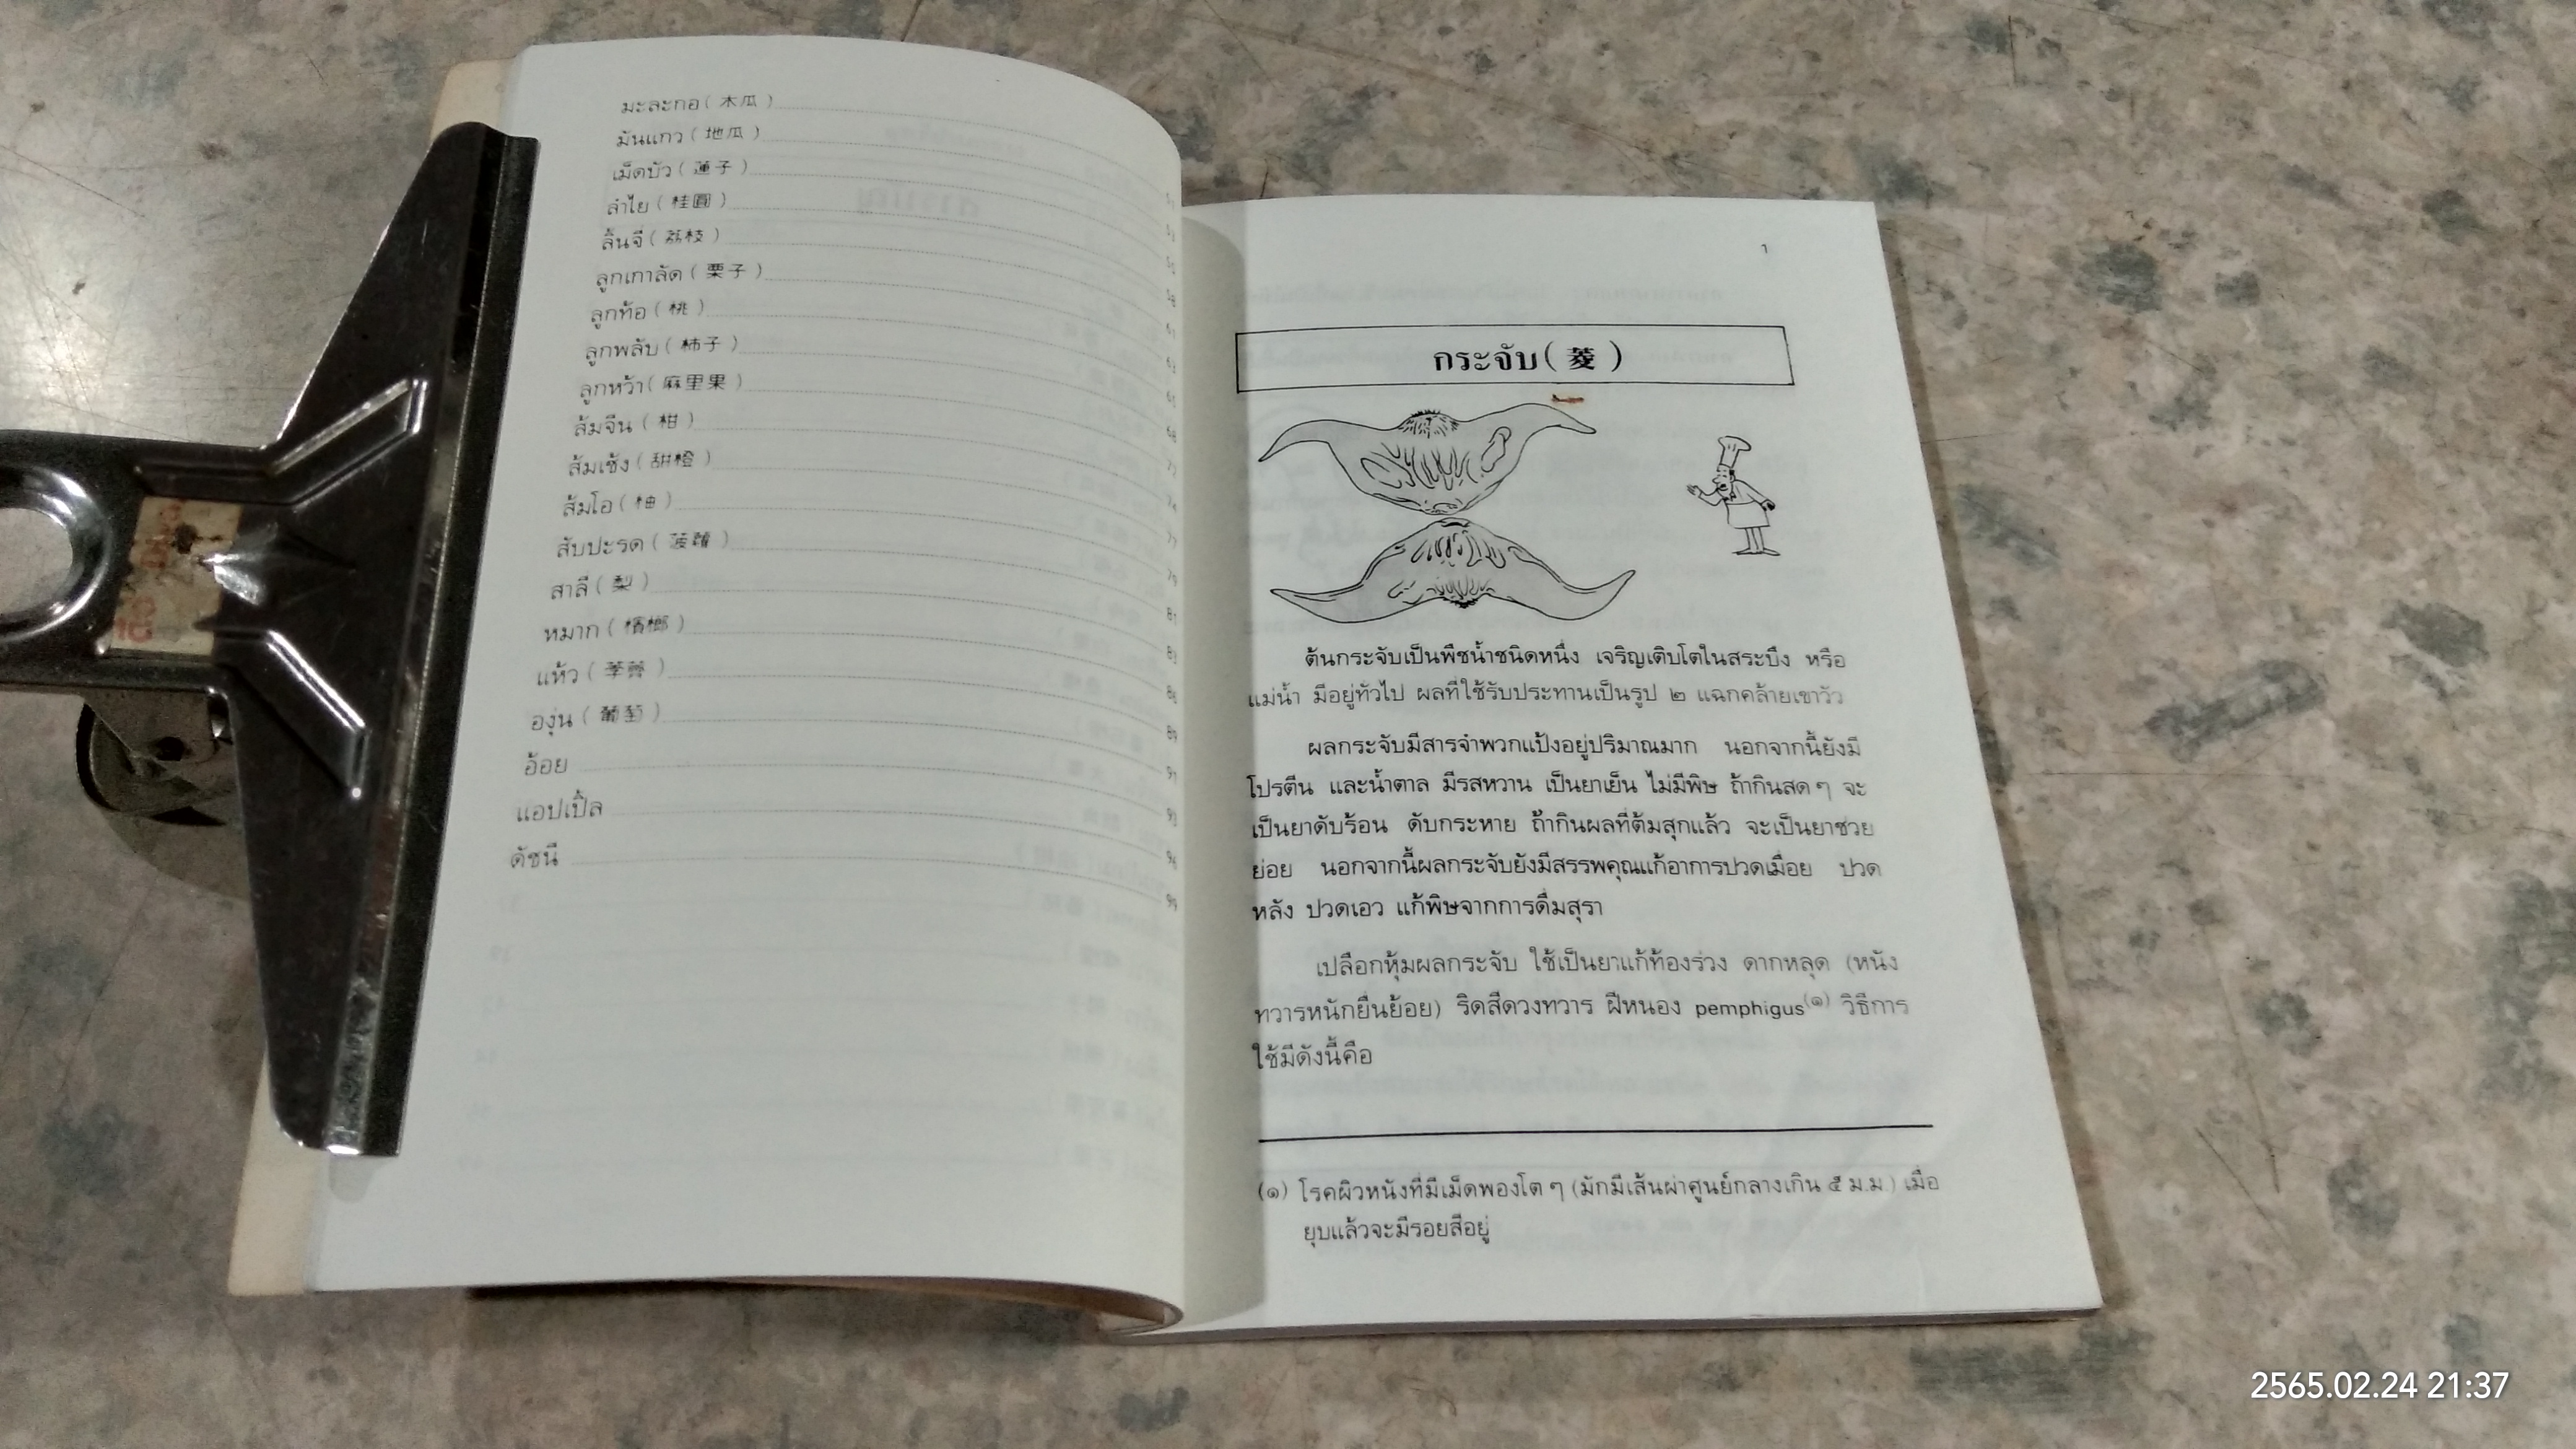 มะละกอ ( 木瓜 )
มันแกว ( 地瓜 )
เม็ดบัว ( 蓮子 )
ลำไย ( 桂圓 )
ลิ้นจี่ ( 荔枝 )
ลูกเกาลัด ( 栗子 )
ลูกท้อ ( 桃 )
ลูกพลับ ( 柿子 )
ลูกหว้า ( 麻里果 )
ส้มจีน ( 柑 )
ส้มเช้ง ( 甜橙 )
ส้มโอ ( 柚 )
สับปะรด ( 菠蘿 )
สาลี่ ( 梨 )
หมาก ( 檳榔 )
แห้ว ( 荸薺 )
องุ่น ( 葡萄 )
อ้อย
แอปเปิ้ล
ดัชนี
1
กระจับ ( 菱 )
ต้นกระจับเป็นพืชน้ำชนิดหนึ่ง เจริญเติบโตในสระบึง หรือ
แม่น้ำ มีอยู่ทั่วไป ผลที่ใช้รับประทานเป็นรูป ๒ แฉกคล้ายเขาวัว
ผลกระจับมีสารจำพวกแป้งอยู่ปริมาณมาก นอกจากนี้ยังมี
โปรตีน และน้ำตาล มีรสหวาน เป็นยาเย็น ไม่มีพิษ ถ้ากินสด ๆ จะ
เป็นยาดับร้อน ดับกระหาย ถ้ากินผลที่ต้มสุกแล้ว จะเป็นยาช่วย
ย่อย นอกจากนี้ผลกระจับยังมีสรรพคุณแก้อาการปวดเมื่อย ปวด
หลัง ปวดเอว แก้พิษจากการดื่มสุรา
เปลือกหุ้มผลกระจับ ใช้เป็นยาแก้ท้องร่วง ดากหลุด (หนัง
ทวารหนักยื่นย้อย) ริดสีดวงทวาร ฝีหนอง pemphigus(๑) วิธีการ
ใช้มีดังนี้คือ
(๑) โรคผิวหนังที่มีเม็ดพองโต ๆ (มักมีเส้นผ่าศูนย์กลางเกิน ๕ ม.ม.) เมื่อ
ยุบแล้วจะมีรอยสีอยู่
2565.02.24 21:37